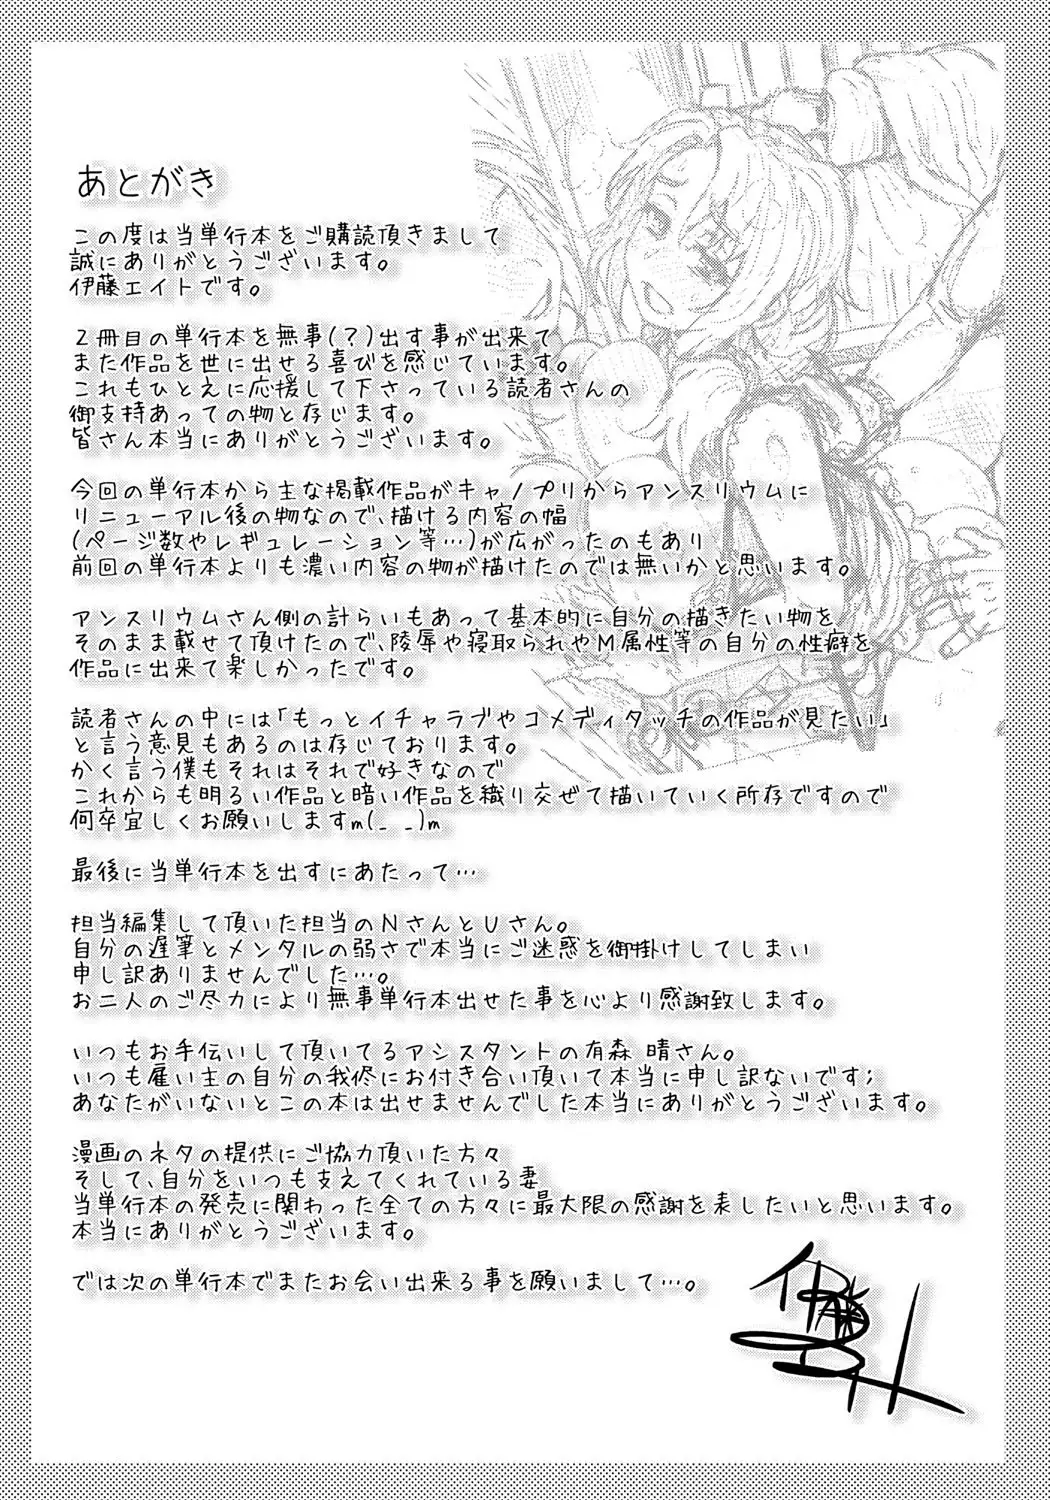 あとがき
この度は当単行本をご購読頂きまして
誠にありがとうございます。
伊藤エイトです。
２冊目の単行本を無事(？)出す事が出来て
また作品を世に出せる喜びを感じています。
これもひとえに応援して下さっている読者さんの
御支持あっての物と存じます。
皆さん本当にありがとうございます。
今回の単行本から主な掲載作品がキャノプリからアンスリウムに
リニューアル後の物なので、描ける内容の幅
(ページ数やレギュレーション等…)が広がったのもあり
前回の単行本よりも濃い内容の物が描けたのでは無いかと思います。
アンスリウムさん側の計らいもあって基本的に自分の描きたい物を
そのまま載せて頂けたので、陵辱や寝取られやM属性等の自分の性癖を
作品に出来て楽しかったです。
読者さんの中には「もっとイチャラブやコメディタッチの作品が見たい」
と言う意見もあるのは存じております。
かく言う僕もそれはそれで好きなので
これからも明るい作品と暗い作品を織り交ぜて描いていく所存ですので
何卒宜しくお願いしますm(_ _)m
最後に当単行本を出すにあたって…
担当編集して頂いた担当のNさんとUさん。
自分の遅筆とメンタルの弱さで本当にご迷惑を御掛けしてしまい
申し訳ありませんでした…。
お二人のご尽力により無事単行本出せた事を心より感謝致します。
いつもお手伝いして頂いてるアシスタントの有森 晴さん。
いつも雇い主の自分の我侭にお付き合い頂いて本当に申し訳ないです;
あなたがいないとこの本は出せませんでした本当にありがとうございます。
漫画のネタの提供にご協力頂いた方々
そして、自分をいつも支えてくれている妻
当単行本の発売に関わった全ての方々に最大限の感謝を表したいと思います。
本当にありがとうございます。
では次の単行本でまたお会い出来る事を願いまして…。
伊藤エイト